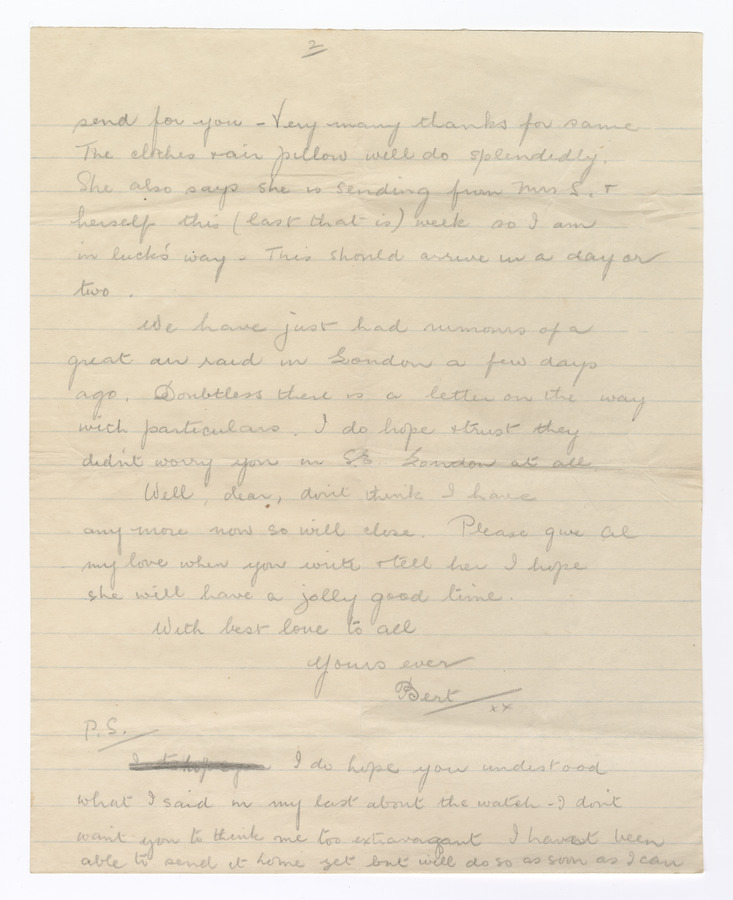 2
send for you - Very many thanks for same
The clothes & air pillow will do splendedly.
She also says she is sending from Mrs S. &
herself this (last that is) week so I am
in luck's way. This should arrive in a day or
two.
We have just had rumours of a
great air raid in London a few days
ago. Doubtless there is a letter on the way
with particulars. I do hope & trust they
didn't worry you in S.E. London at all.
Well, dear, don't think I have
any more now so will close. Please give Al
my love when you write & tell her I hope
she will have a jolly good time.
With best love to all
Yours ever
Bert xx
P.S.
I do hope you understood
what I said in my last about the watch - I don't
want you to think me too extravagant I havent been
able to send it home yet but will do so as soon as I can